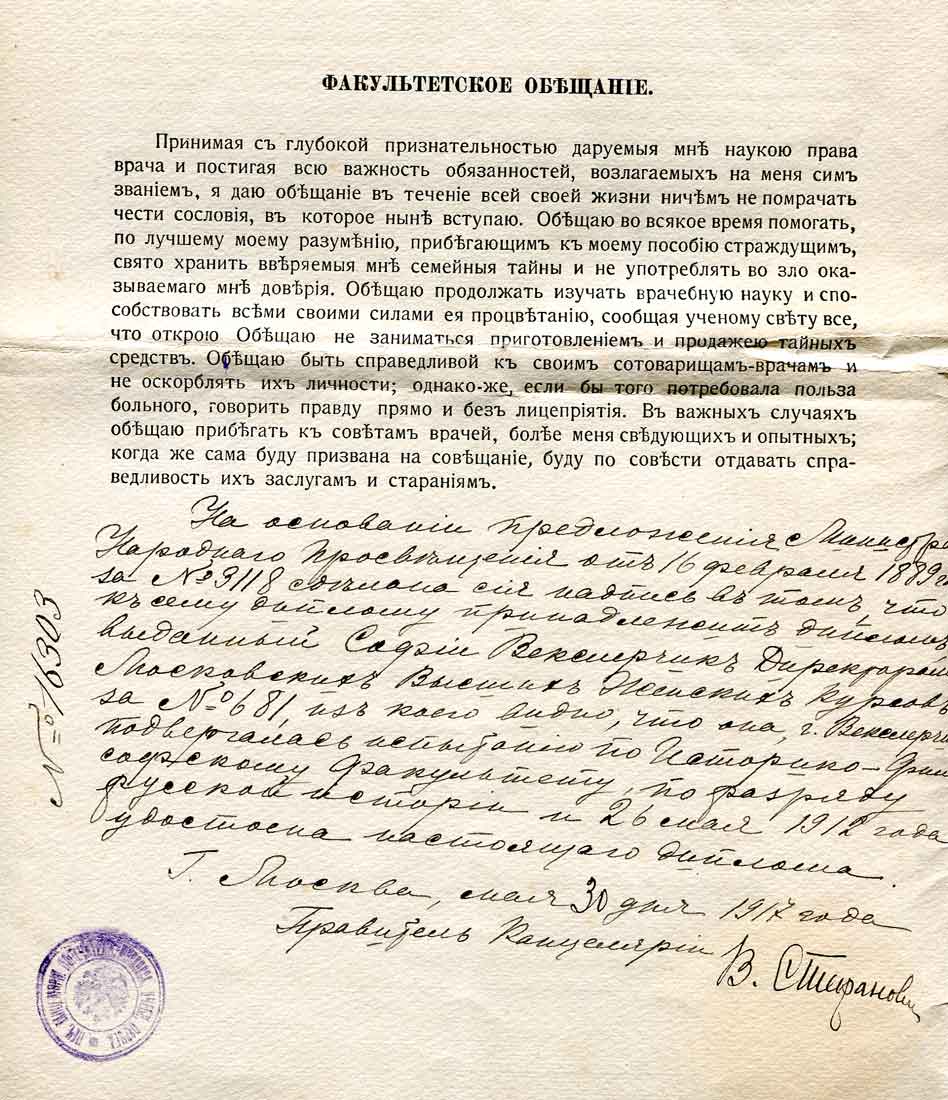 ФАКУЛЬТЕТСКОЕ ОБѢЩАНІЕ.
Принимая съ глубокой признательностью даруемыя мнѣ наукою права
врача и постигая всю важность обязанностей, возлагаемыхъ на меня симъ
званіемъ, я даю обѣщаніе въ теченіе всей своей жизни ничѣмъ не помрачать
чести сословія, въ которое нынѣ вступаю. Обѣщаю во всякое время помогать,
по лучшему моему разумѣнію, прибѣгающимъ къ моему пособію страждущимъ,
свято хранить ввѣряемыя мнѣ семейныя тайны и не употреблять во зло ока-
зываемаго мнѣ довѣрія. Обѣщаю продолжать изучать врачебную науку и спо-
собствовать всѣми своими силами ея процвѣтанію, сообщая ученому свѣту все,
что открою Обѣщаю не заниматься приготовленіемъ и продажею тайныхъ
средствъ. Обѣщаю быть справедливой къ своимъ сотоварищамъ-врачамъ и
не оскорблять ихъ личности; однако-же, если бы того потребовала польза
больного, говорить правду прямо и безъ лицепріятія. Въ важныхъ случаяхъ
обѣщаю прибѣгать къ совѣтамъ врачей, болѣе меня свѣдующихъ и опытныхъ;
когда же сама буду призвана на совѣщаніе, буду по совѣсти отдавать спра-
ведливость ихъ заслугамъ и стараніямъ.
На основаніи предложенія Министра
Народнаго Просвѣщенія отъ 16 февраля 1889 г.
за № 3118 сдѣлана сія надпись въ томъ, что
къ сему диплому принадлежитъ дипломъ
выданный Софіи Векслерчикъ Директоромъ
Московскихъ Высшихъ Женскихъ Курсовъ
за № 681, изъ коего видно, что она, г. Векслерчи
подвергалась испытанію по Историко-Фило
софскому Факультету, по разряду
русской исторіи и 26 мая 1912 года
удостоена настоящаго диплома.
Г. Москва, мая 30 дня 1917 года
Правитель Канцеляріи
В. Стефанови
№ 16303